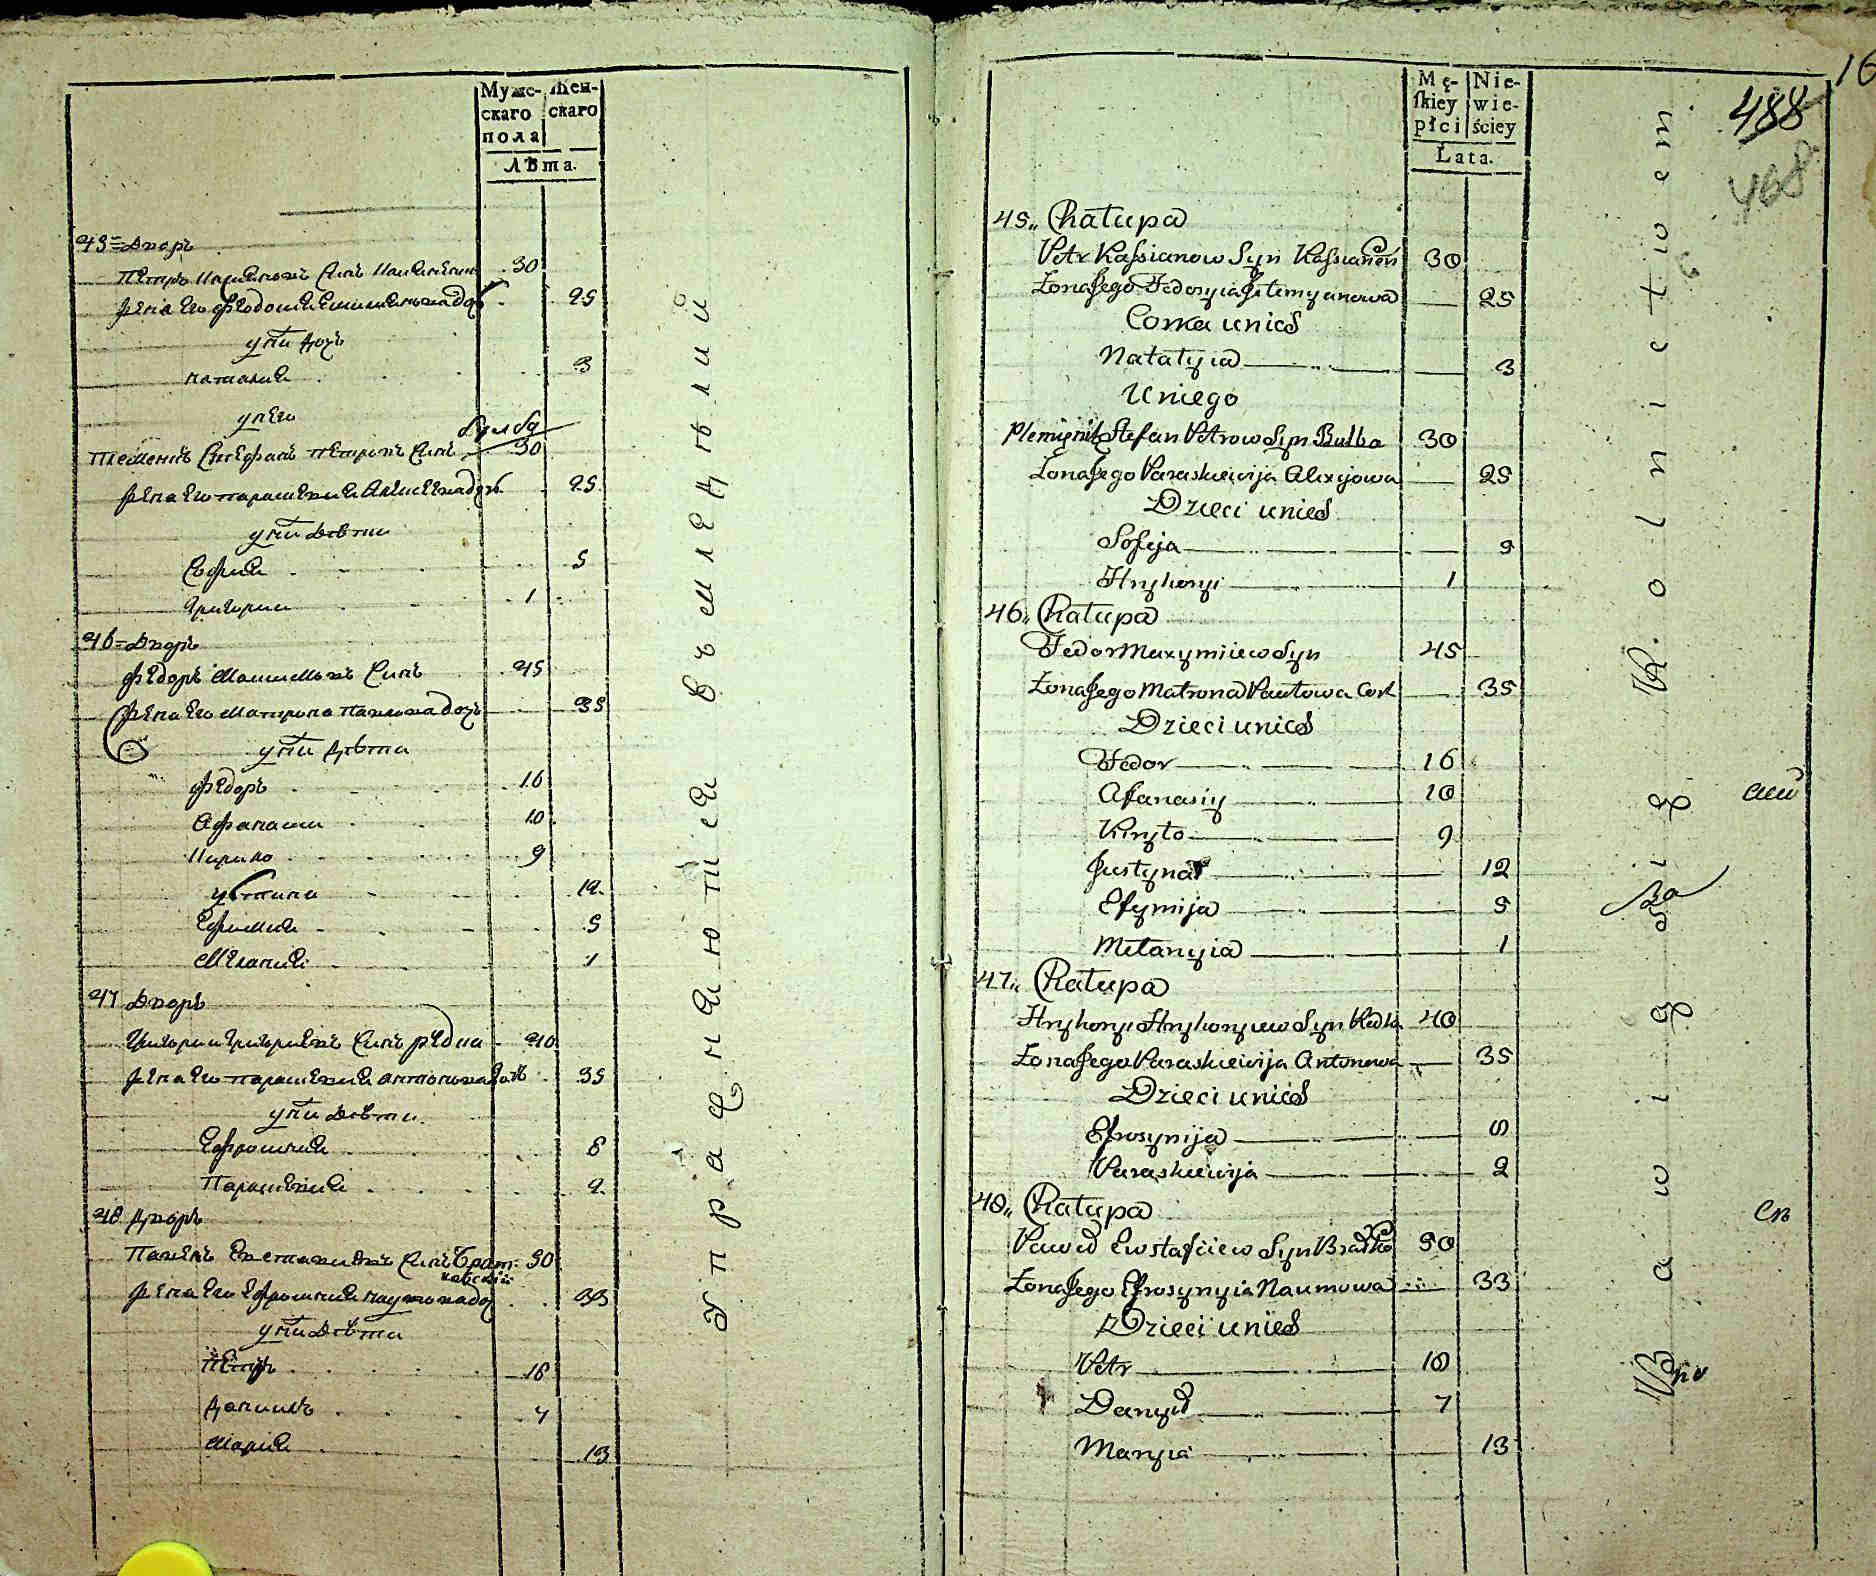 Мужс-
скаго
пола
Жен-
скаго
Лѣта.
45 = Дворъ
Петръ Касіяновъ Сынъ 30
Жена Его Феодосия 25
у нихъ дочь
наталия 3
у него
Бульба
Племенникъ Стефанъ Петровъ Сынъ 30
Жена Его параскевия Алексѣева дочь 25
у нихъ Дѣти
София 5
Григорий 1
46 = Дворъ
Федоръ Максимовъ Сынъ 45
Жена Его Матрона Павлова дочь 35
у нихъ дѣти
Федоръ 16
Афанасий 10
Кирило 9
устина 12
Ефимия 5
Мелания 1
47 Дворъ
Григорий Григориевъ Сынъ рѣдка 40
Жена Его параскевия антонова дочь 35
у нихъ Дѣти
Ефросиния 8
Параскевия 2
48 Дворъ
Павелъ Евстафиевъ Сынъ Брат- 50
ковский
Жена Его Ефросиния наумова до 33
у нихъ Дѣти
Петръ 18
Данило 7
Мария 13
Упражняются въ земледѣлии
Mę-
ſkiey
płci
Nie-
wie-
ściey
Lata.
16
488
468
45„ Chałupa
Petr Kassianow Syn 30
Żona Jego Fedosyia 25
Corka u nich
Natalyia 3
U niego
Plemięnik Stefan Petrow Syn Bulba 30
Żona Jego Paraskiewija Alexijowa 25
Dzieci u nich
Sofija 5
Hryhoryi 1
46„ Chałupa
Fedor Maxymiiew Syn 45
Żona Jego Matrona Pawłowa Cork 35
Dzieci u nich
Fedor 16
Afanasiy 10
Kiryło 9
Justyna 12
Efymija 5
Mełanyia 1
47„ Chałupa
Hryhoryi Hryhoryiew Syn Redka 40
Żona Jego Paraskiewija Antonowa 35
Dzieci u nich
Efrosynija 8
Paraskiewija 2
48„ Chałupa
Paweł Ewstafiiew Syn 50
Żona Jego Efrosynyia Naumowa 33
Dzieci u nich
Petr 18
Danył 7
Maryia 13
Bawią się Rolnictwem